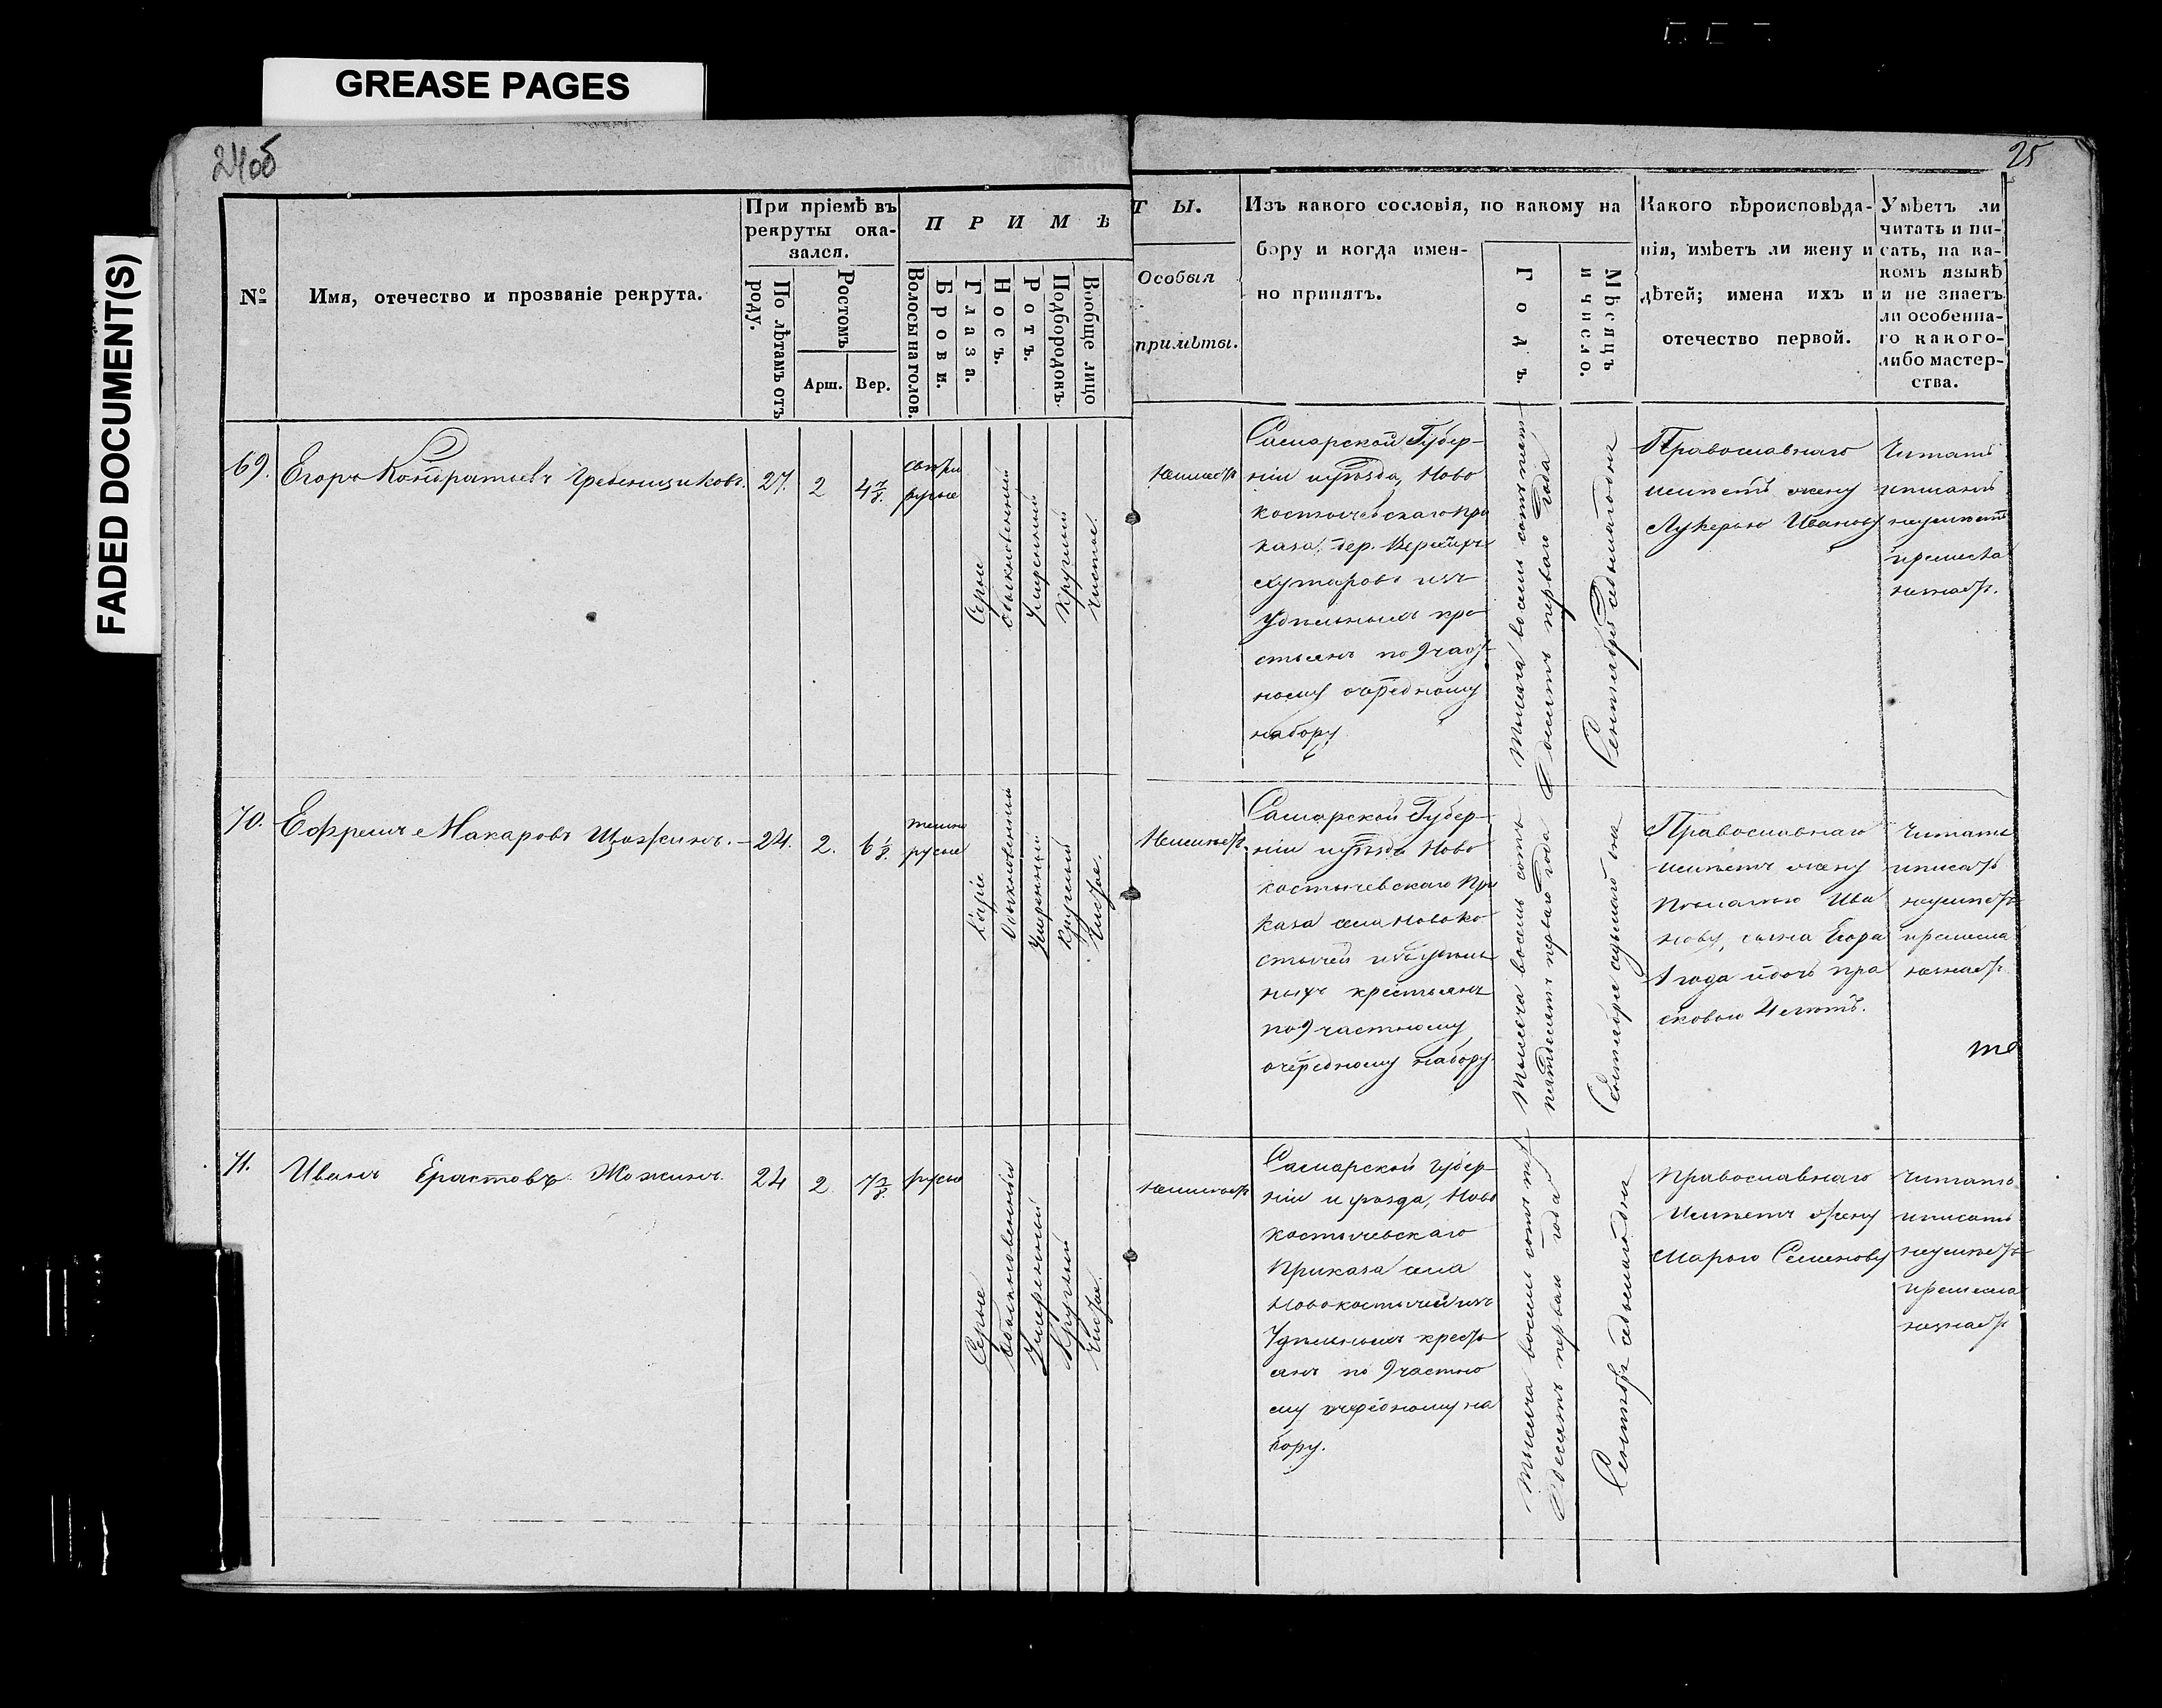 GREASE PAGES
FADED DOCUMENT(S)
24об
25
№
Имя, отечество и прозваніе рекрута.
При пріемѣ въ
рекруты ока-
зался.
По лѣтамъ отъ
роду.
Ростомъ
Арш.
Вер.
ПРИМѢ
Волосы на голов.
Брови.
Глаза.
Носъ.
Ротъ.
Подбородокъ.
Вообще лицо
ТЫ.
Особыя
примѣты.
Изъ какого сословія, по какому на
бору и когда имен-
но принятъ.
Годъ.
Мѣсяцъ
и число.
Какого вѣроисповѣда-
нія, имѣетъ ли жену и
дѣтей; имена ихъ и
отечество первой.
Умѣетъ ли
читать и пи-
сать, на ка-
комъ языкѣ
и не знаетъ
ли особенна-
го какого-
либо мастер-
ства.
69.
Егоръ Кондратьевъ Гребенщиковъ.
27.
2
4 7/8.
светло
русые
Серые
Обыкновенный
Умеренный
Круглый
Чистое.
Неимеетъ
Самарской Губер-
ніи и уѣзда, Ново
костычевскаго При
каза, дер.
изъ
Удѣльныхъ кре
стьянъ по 9 част
ному очередному
набору
Тысяча восемь сотъ пять
десятъ перваго года
Сентября седьмаго дня
Православнаго
имѣетъ жену
Лукерью Иванову
Читать
иписать
неумѣетъ
иремесла
незнаетъ.
70.
Ефремъ Макаровъ Щожинъ.
24.
2.
6 1/8.
темно
русые
Каріе
Обыкновенный
Умеренный
Круглый
Чистое.
Неимѣетъ.
Самарской Губер-
ніи и уѣзда Ново
костычевскаго При
каза села Новоко
стычей изъ удѣль
ныхъ крестьянъ
по 9 частному
очередному набору
Тысяча восемь сотъ
пятдесятъ перваго года
Сентября седьмаго дня
Православнаго
имѣетъ жену
Ива
нову, сына Егора
1 года и дочь Пра
сковью 4 лѣтъ.
Читать
иписать
неумѣетъ
иремесла
незнаетъ
71.
Иванъ Ерастовъ Можжинъ.
24
2
7 7/8
русые
Серые
Обыкновенный
Умеренный
Круглый
Чистое.
неимѣетъ
Самарской губер-
ніи и уѣзда, Ново
костычевскаго
Приказа села
Новокостычей изъ
Удѣльныхъ кресть
янъ по 9 частно
му очередному на
бору.
Тысяча восемь сотъ пять
десятъ перваго года
Сентября седьмаго дня
Православнаго
Имѣетъ жену
Марью Семенову
Читать
иписать
неумѣетъ
иремесла
незнаетъ